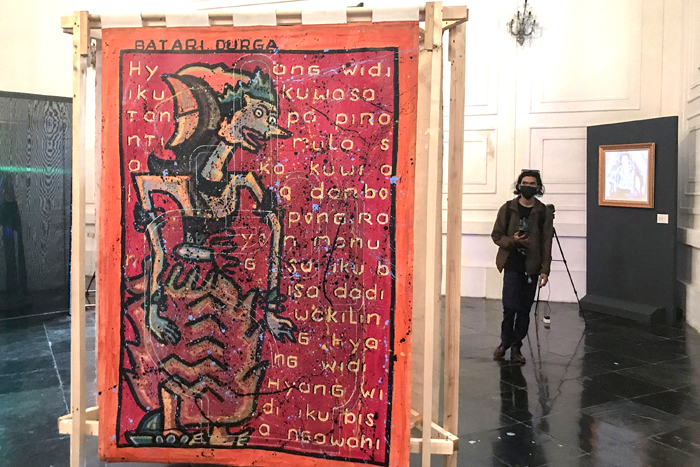 BATARI DURGA
HY ANG WIDI
IKU KUWASA
TAN PA PIRA
NTI MULO S
KO KUWI O
DONBO
PONGIRA
YEN MONU
NG SU IKU B
ISA DADI
WAKILIN
G HYA
NG WIDI
HYANG WI
DI IKU BIS
A NGOWOHI